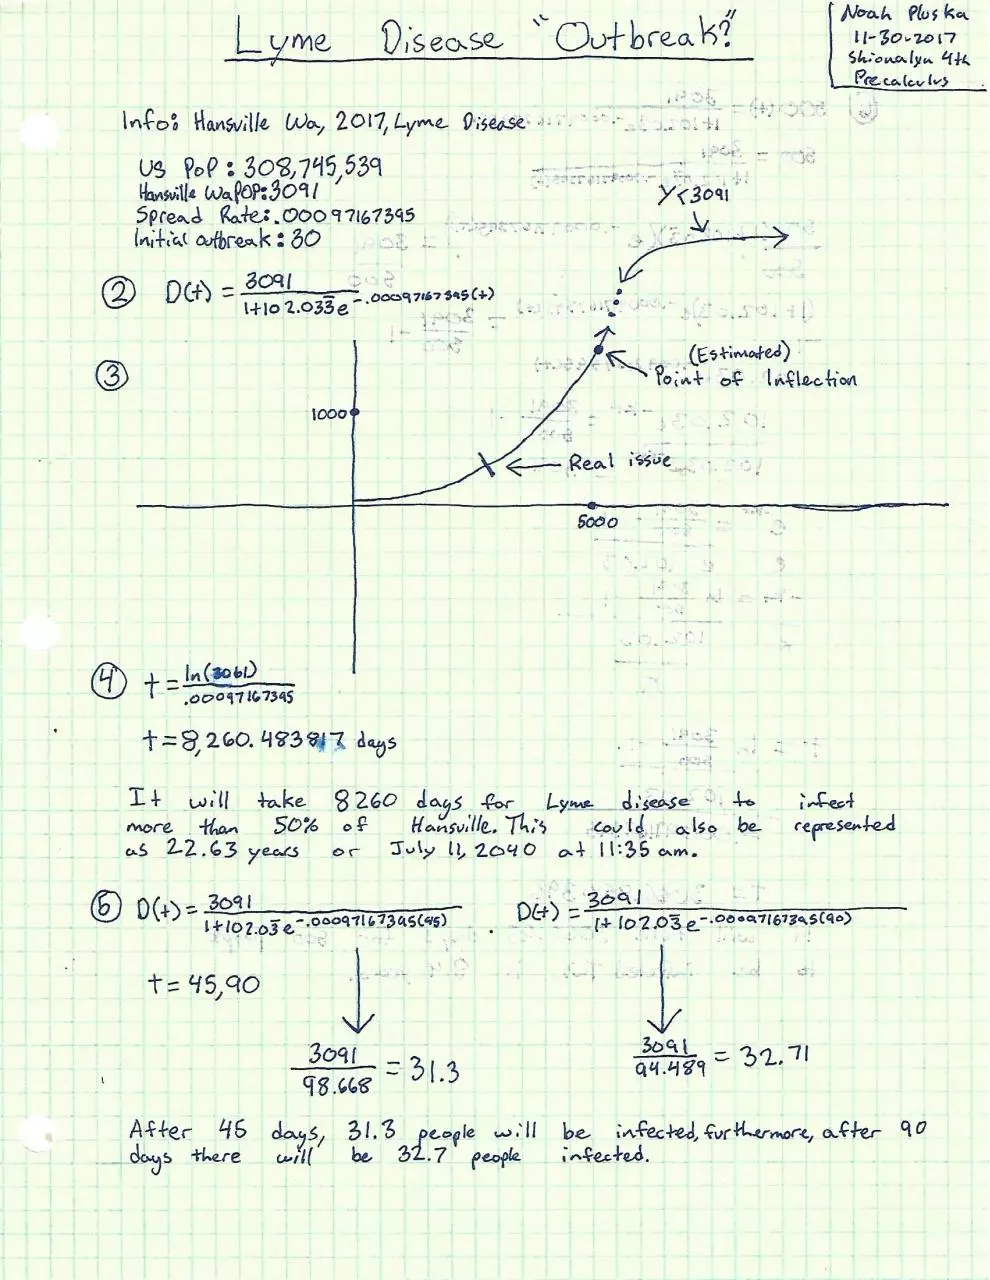 Lyme Disease "Outbreak?"
Noah Pluska
11-30-2017
4th
Precalculus
Info: Hansville Wa, 2017, Lyme Disease
US POP: 308,745,539
Hansville Wa POP: 3091
Spread Rate: .00097167395
Initial outbreak: 30
Y<3091
② D(t) = 3091 / 1+102.03̅3̅e^-.00097167395(t)
③
(Estimated)
Point of Inflection
1000
Real issue
5000
④ t = ln(3061) / .00097167395
t=8,260.483817 days
It will take 8260 days for Lyme disease to infect
more than 50% of Hansville. This could also be represented
as 22.63 years or July 11, 2040 at 11:35 am.
⑤ D(t) = 3091 / 1+102.03̅e^-.00097167395(45) D(t) = 3091 / 1+102.03̅e^-.00097167395(90)
t= 45,90
3091 / 98.668 = 31.3 3091 / 94.489 = 32.71
After 45 days, 31.3 people will be infected, furthermore, after 90
days there will be 32.7 people infected.